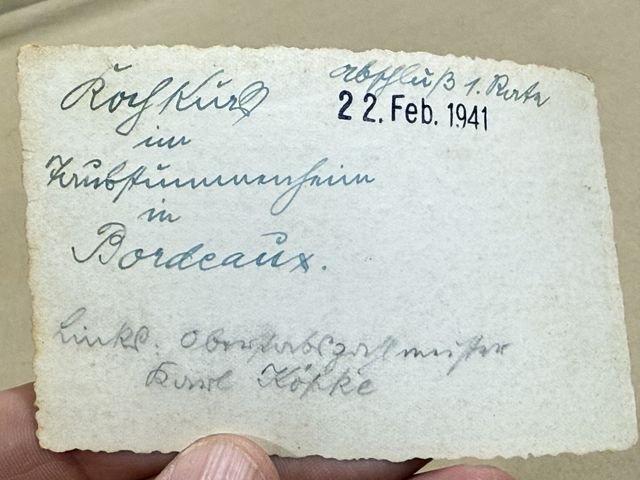 Kochkurs
im
Taubstummenheim
in
Bordeaux.
Abschluß 1. Rate
22. Feb. 1941
Links. Oberstabszahlmeister
Karl Köpke